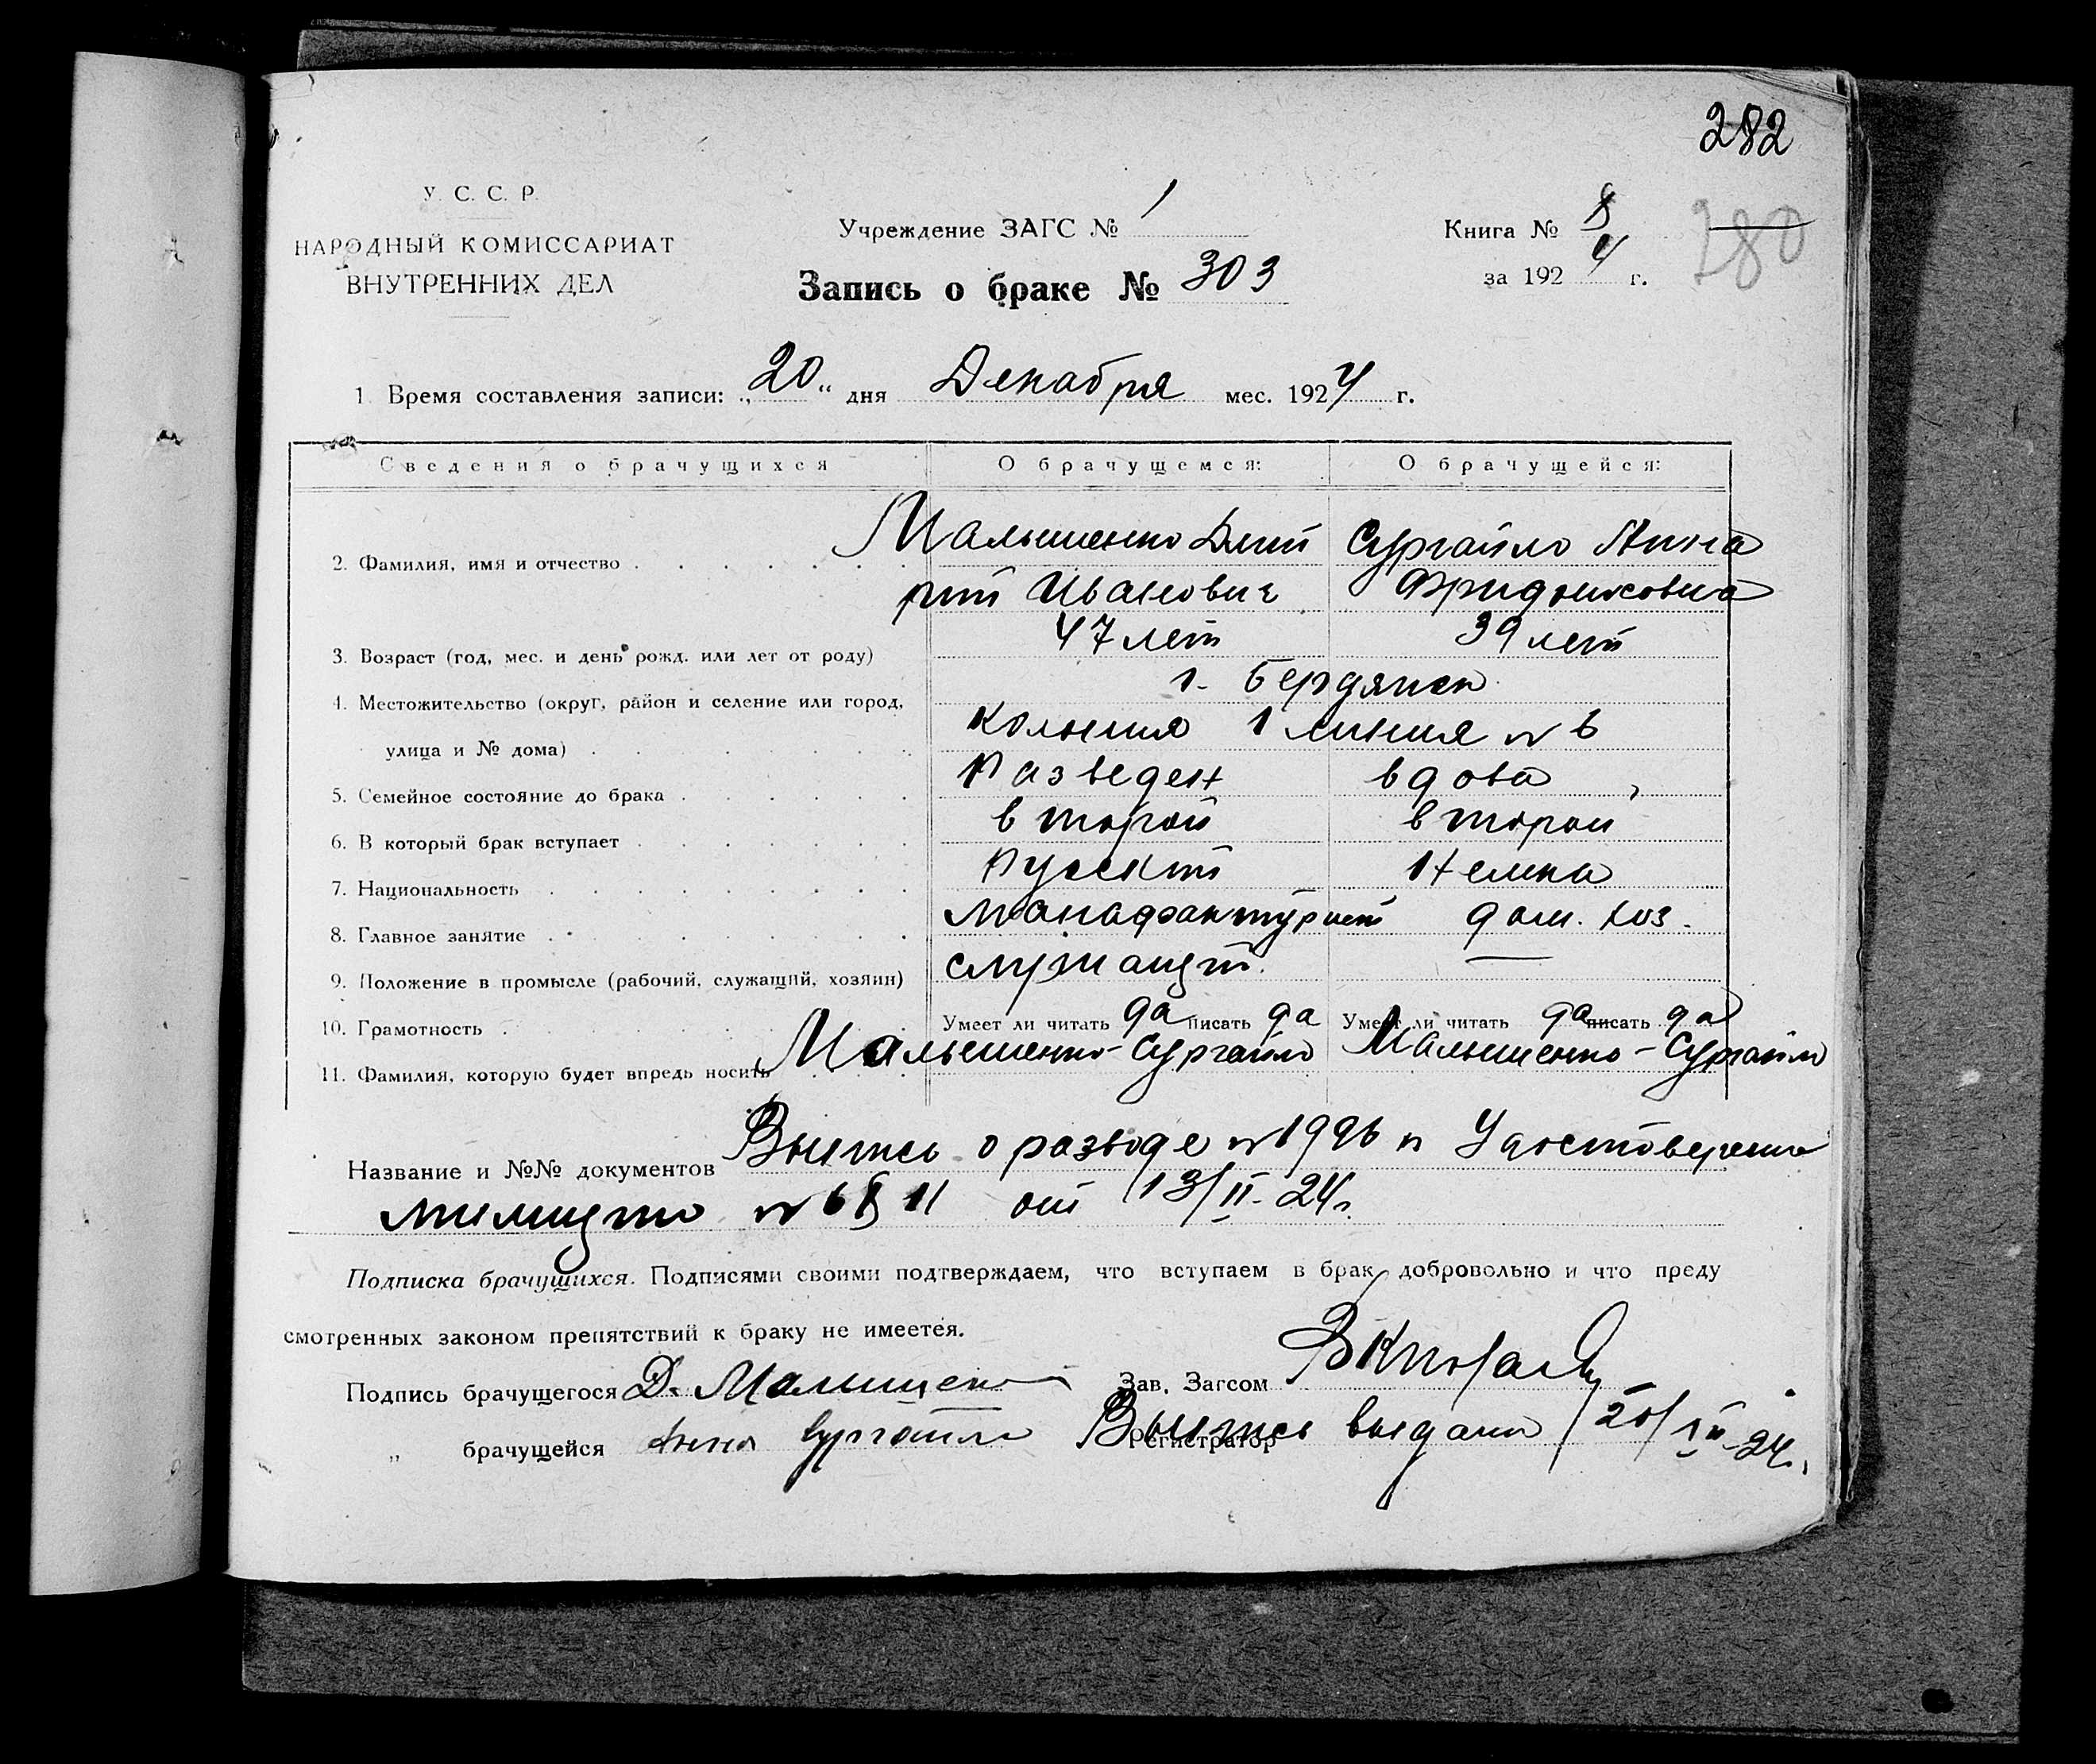 282
У. С. С. Р.
НАРОДНЫЙ КОМИССАРИАТ
ВНУТРЕННИХ ДЕЛ
Учреждение ЗАГС № 1
Запись о браке № 303
Книга № 8
за 1924 г.
280
1. Время составления записи: „20“ дня Декабря мес. 1924 г.
Сведения о брачущихся О брачущемся: О брачущейся:
2. Фамилия, имя и отчество Малышенко Дмит Сургайло Анна
рий Иванович Фридриховна
3. Возраст (год, мес. и день рожд. или лет от роду) 47 лет 39 лет
4. Местожительство (округ, район и селение или город, г. Бердянск
улица и № дома) Колония 1 линия № 6
5. Семейное состояние до брака Разведен вдова
6. В который брак вступает второй второй
7. Национальность Русский Немка
8. Главное занятие Манафактурист дом. хоз.
9. Положение в промысле (рабочий, служащий, хозяин) служащий. —
10. Грамотность Умеет ли читать да писать да Умеет ли читать да писать да
11. Фамилия, которую будет впредь носить Малышенко-Сургайло Малышенко-Сургайло
Название и №№ документов Выпись о разводе № 1996 и Удостоверение
милиции от 13/II-24г.
Подписка брачущихся. Подписями своими подтверждаем, что вступаем в брак добровольно и что преду
смотренных законом препятствий к браку не имеется.
Подпись брачущегося Д. Малышенко Зав. Загсом
„ брачущейся Анна Сургайло Регистратор Выпись выдана 20/XII-24г.